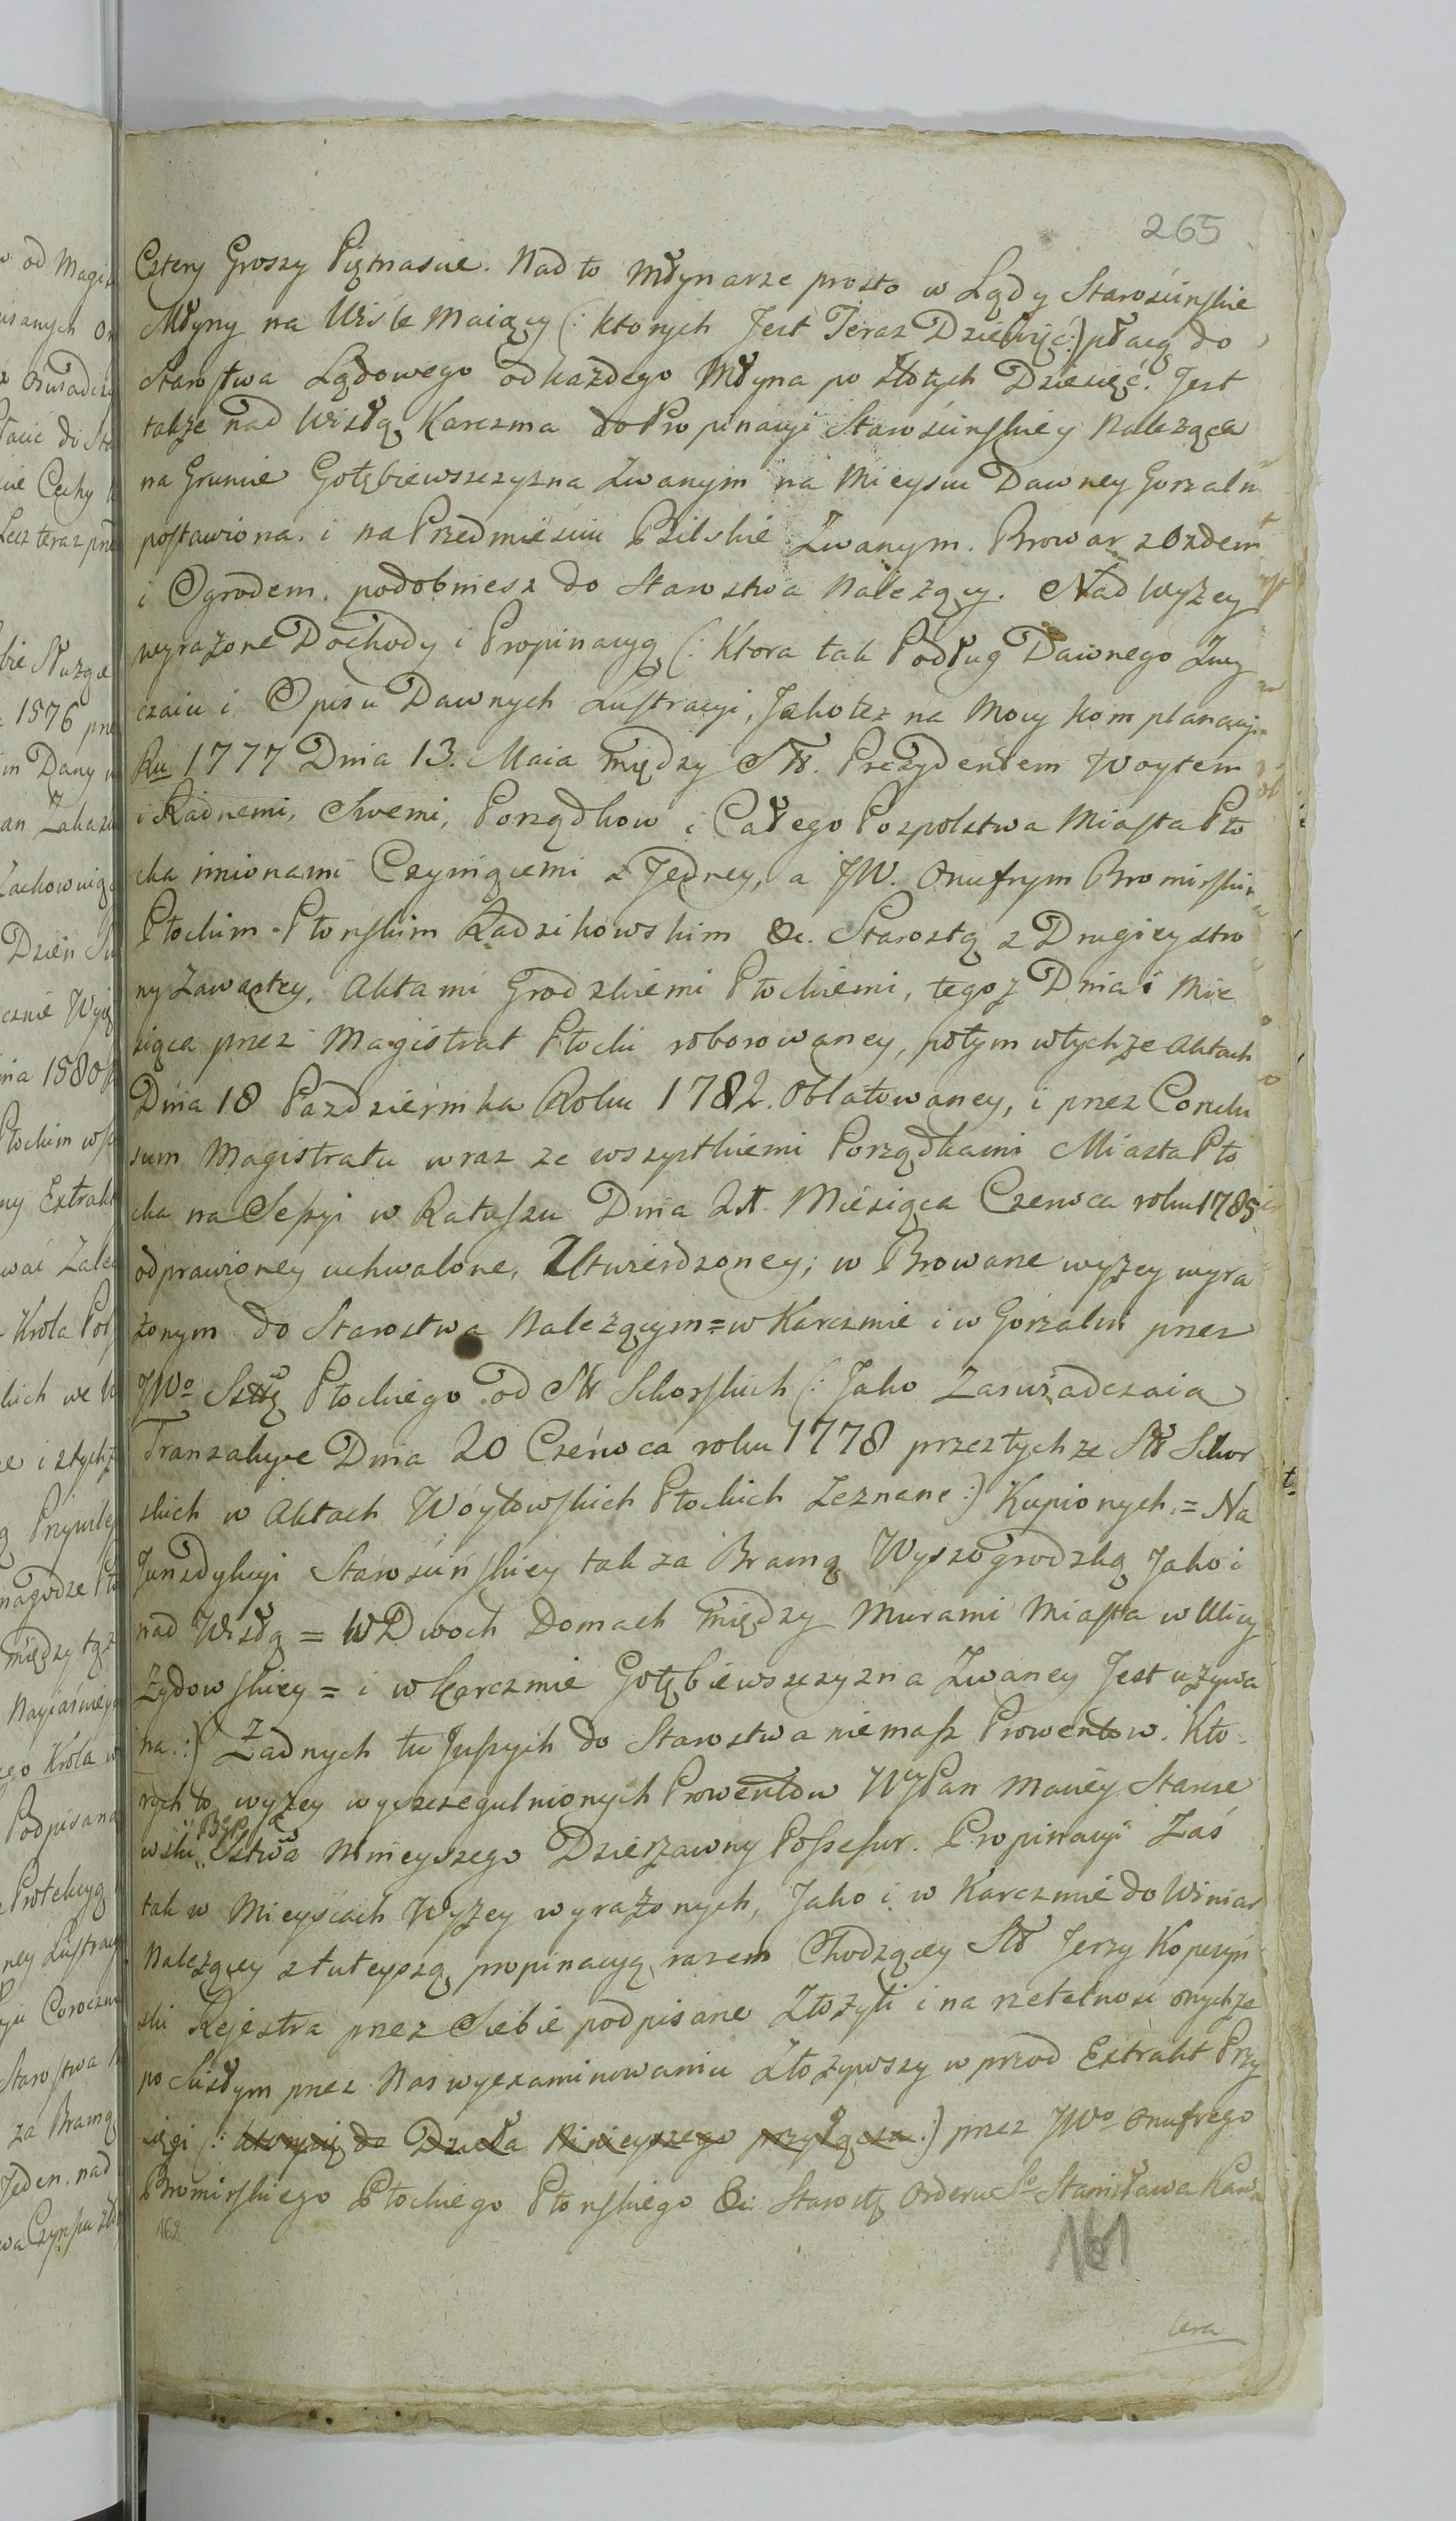 265
Cztery Groszy Piętnascie. Nad to Młynarze prosto w Lądy Starościnskie
Młyny na Wiśle Maiący (: ktorych Jest Teraz Dziewięć :) płacą do
Starostwa Lądowego od każdego Młyna po złotych Dziesięć. Jest
także nad Wisłą Karczma do Propinacyi Starościnskiey Należąca
na Gruncie Gołębiewszczyzna Zwanym na Mieyscu Dawney Gorzalni
postawiona. i na Przedmieściu Bilskie Zwanym. Browar z Ozdem
i Ogrodem. podobniesz do Starostwa Należący. Nad Wyzey
wyrażone Dochody i Propinacyą (: Ktora tak Podług Dawnego Zwy
czaiu i Opisu Dawnych Lustracyi, Jako też na Mocy Komplanacyi
Ru 1777 Dnia 13. Maia między Sł. Prezydentem Woytem
i Radnemi, Swemi, Porządkow i Całego Pospolstwa Miasta Pło
cka imionami Czyniącemi z Jedney, a JW. Onufrym Bromirskim
Płockim Płonskim Radzikowskim &c. Starostą z Drugiey stro
ny Zawartey, Aktami Grodzkiemi Płockiemi, tegoż Dnia i Mie
siąca przez Magistrat Płocki roborowaney, potym w tychże Aktach
Dnia 18 Pazdziernika Roku 1782. Oblatowaney, i przez Conclu
sum Magistratu wraz ze wszystkiemi Porządkami Miasta Pło
cka na Sessyi w Ratuszu Dnia Miesiąca Czerwca roku 1785
odprawioney uchwalone, Utwierdzoney; w Browarze wyżey wyra
żonym do Starostwa Należącym = w Karczmie i w Gorzalni przez
JWo Sttę Płockiego od Sł Sikorskich (: Jako Zaświadczaią
Tranzakcye Dnia 20 Czerwca roku 1778 przez tychże Sł Sikor
skich w Aktach Wóytowskich Płockich Zeznane :) Kupionych, = Na
Jurisdykcyi Starościnskiey tak za Bramą Wyszogrodzką Jako i
nad Wisłą = W Dwoch Domach między Murami Miasta w Ulicy
Zydowskiey = i w Karczmie Gołębiewszczyzna Zwaney Jest używa
na :) Żadnych tu Juszych do Starostwa niemasz Prowentow. Kto
rych to wyżey wyszczegulnionych Prowentow WJPan Maciey Starze
wski Bgp. Sstwa Ninieyszego Dzierżawny Possessor. Propinacyi Zaś
tak w Mieyscach Wyżey wyrażonych, Jako i w Karczmie do Winiar
Należącey z tuteyszą propinacyą razem Chodzącey Sł Jerzy Kopczyń
ski Rejestra przez Siebie podpisane Złożyli i na rzetelnosc onychże
po Scisłym przez Nas wyexaminowaniu Złożywszy wprzod Extrakt Przy
sięgi (: ktory się do Dzieła Ninieyszego przyłącza :) przez JWo Onufrego
Bromirskiego Płockiego Płonskiego &c: Starostę Orderu So Stanisława Kawa
162
161
lera